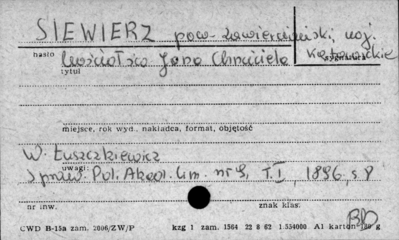 SIEWIERZ pow. zawierciański, woj.
hasło Kościółko Jana Chrzciciela Katowickie
tytuł sygnatura
miejsce, rok wyd., nakładca, format, objętość
W. Łuszczkiewicz
uwagi
Spraw. Pol. Akad. Um. nr 9, T. I, 1896, s 8
nr inw. znak klas.
CWD B-15a zam. 2006/ZW/P kzg 1 zam. 1564 22 8 62 1.554000 A1 karton g